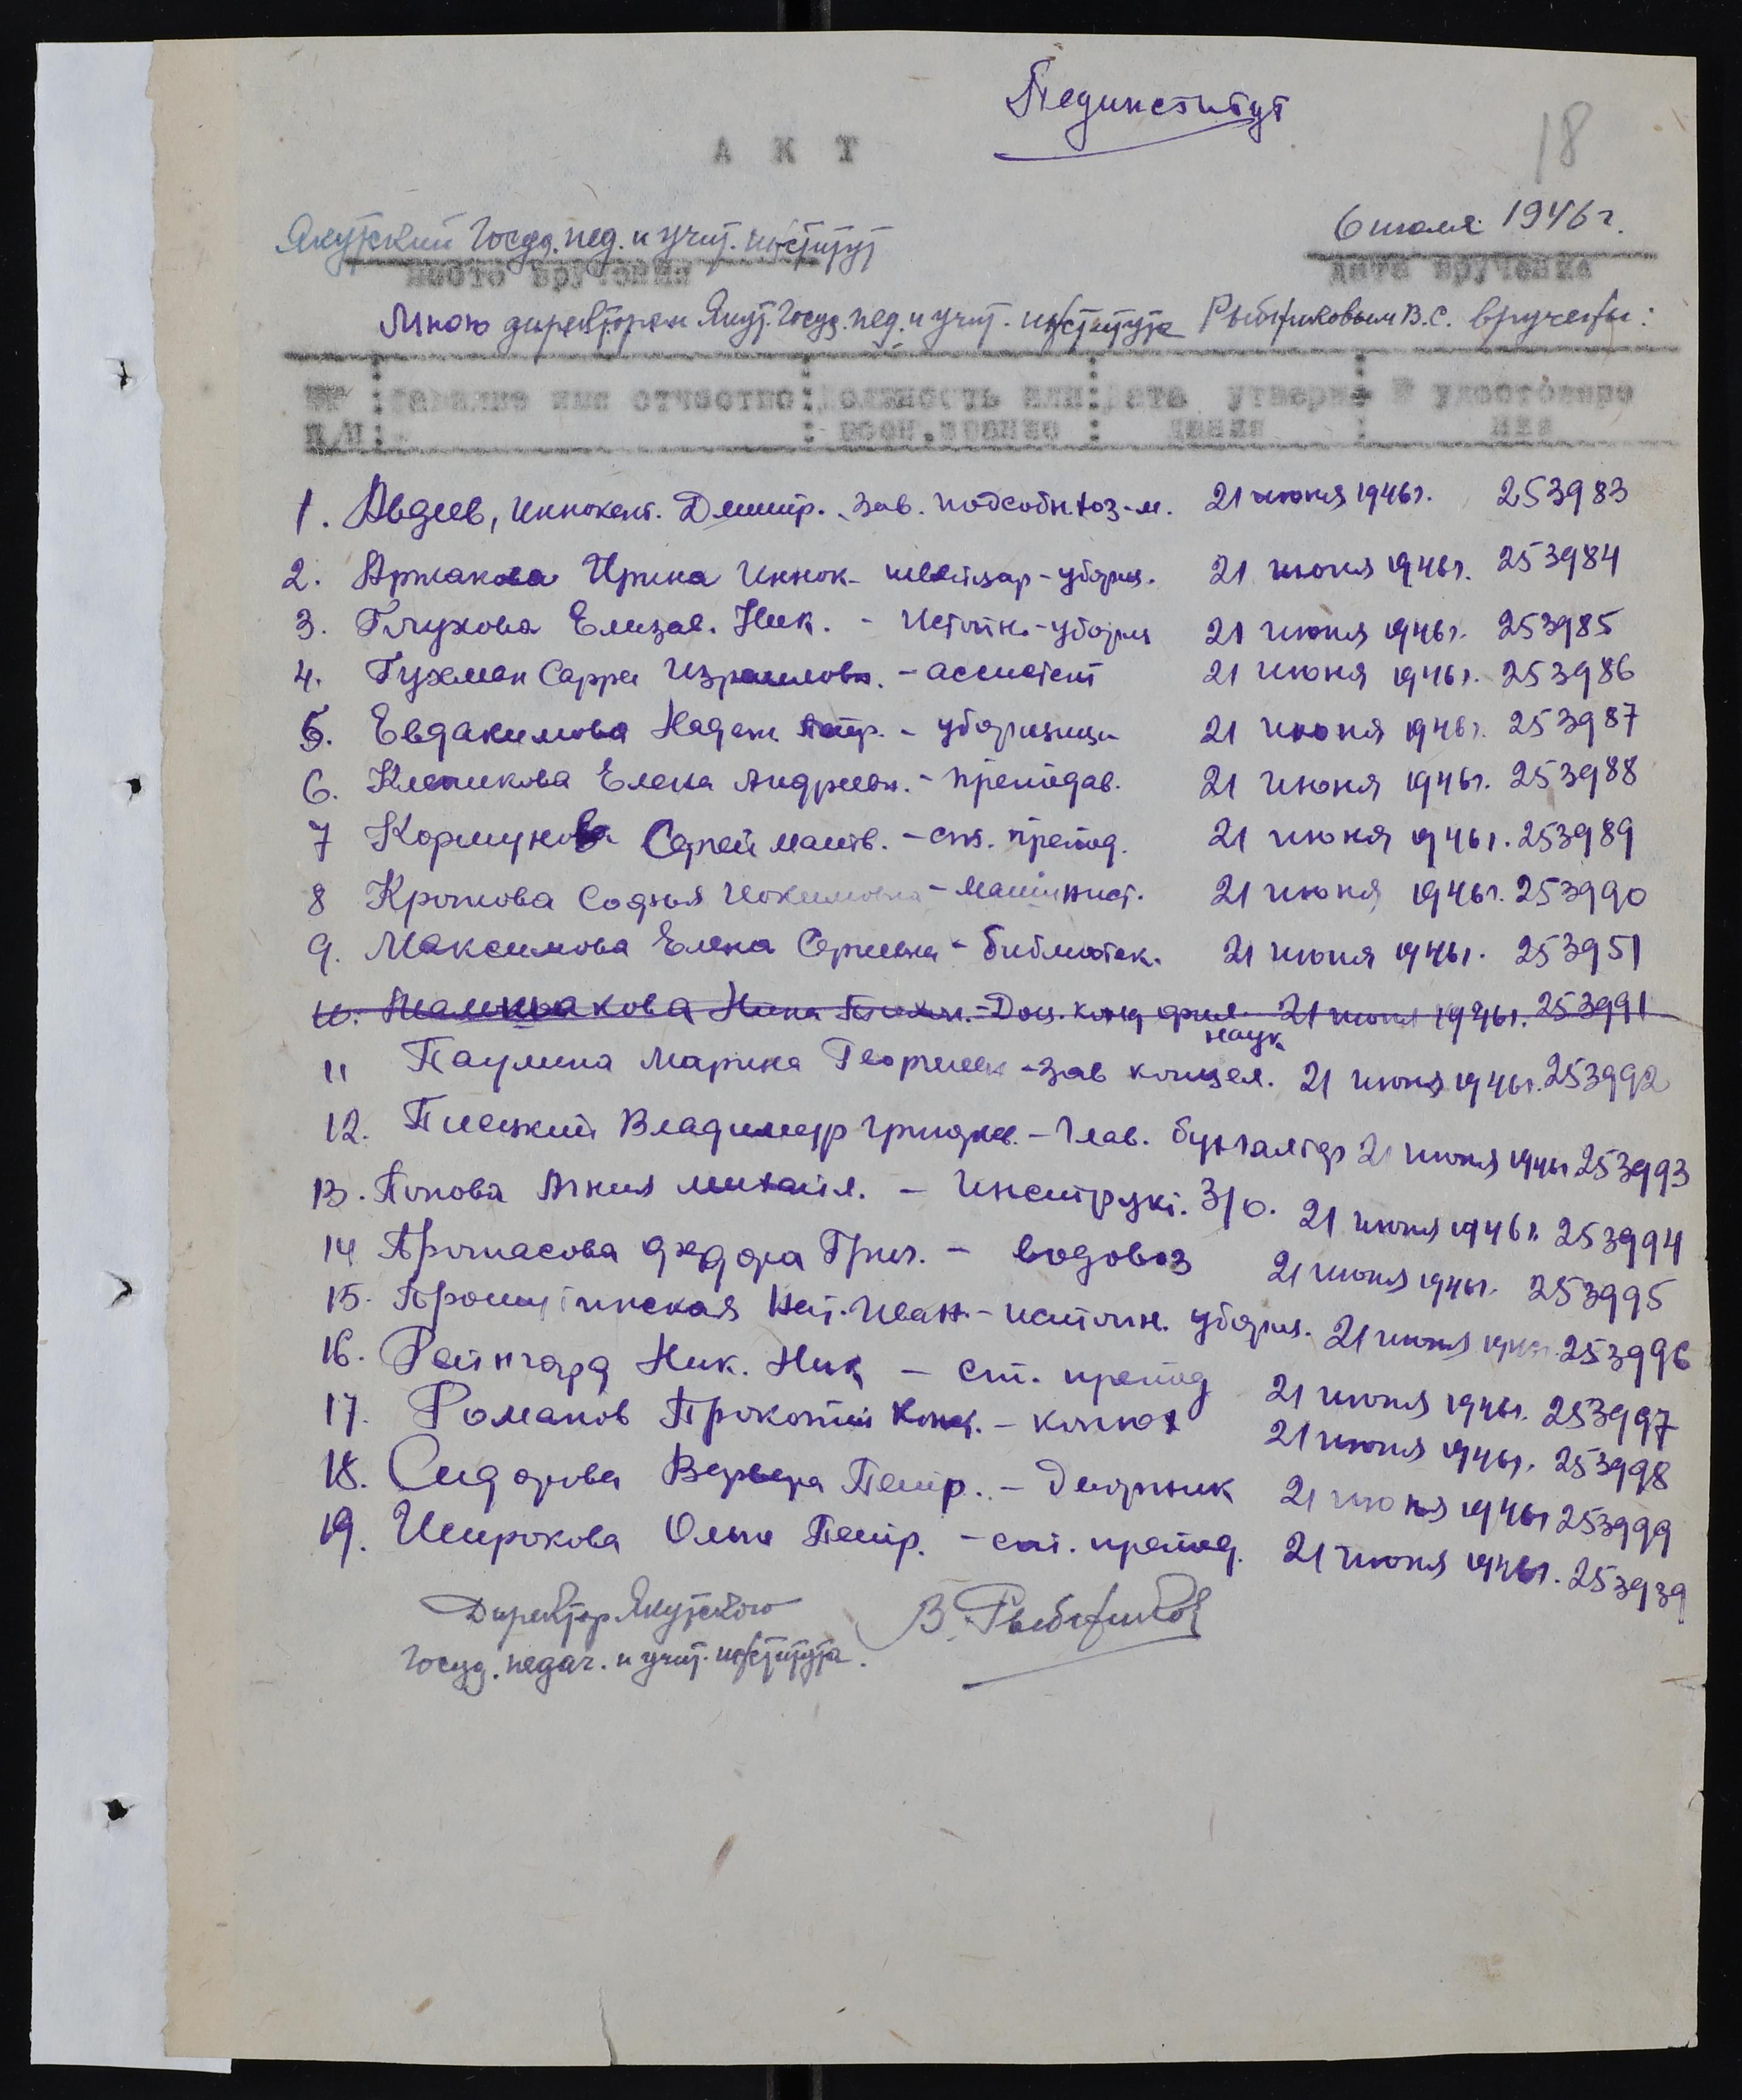 Пединститут
18
АКТ
Якутский Госуд. пед. и учит. институт
6 июля 1946 г.
место вручения
дата вручения
Мною директором Якут. Госуд. пед. и учит. института Рыбниковым В.С. вручены:
№№ Фамилия имя отчество Должность или Дата утверж- № удостовере
п/п воен. звание дения ния
1. Авдеев, Иннокент. Дмитр. - зав. подсобн. хоз-м. 21 июня 1946 г. 253983
2. Аржакова Ирина Иннок - швейцар-уборщ. 21 июня 1946 г. 253984
3. Глухова Елизав. Ник. - Истопн.-уборщ 21 июня 1946 г. 253985
4. Гухман Сарра Израиловн. - ассистент 21 июня 1946 г. 253986
5. Евдакимова Надеж Петр. - уборщица 21 июня 1946 г. 253987
6. Клепикова Елена Андреевн. - преподав. 21 июня 1946 г. 253988
7 Сергей Матв. - ст. препод. 21 июня 1946 г. 253989
8 Кротова Софья Иокимовна - Машинист. 21 июня 1946 г. 253990
9. Максимова Елена Сергеевна - библиотек. 21 июня 1946 г. 253951
10. Нина - Доц. канд. фил. наук 21 июня 1946 г. 253991
11 Паулина Марина Георгиев - зав концел. 21 июня 1946 г. 253992
12. Владимир - Глав. бухгалтер 21 июня 1946 г 253993
13. Попова Агния Михайл. - Инструкт. З/о. 21 июня 1946 г. 253994
14 Протасова Федора Григ. - водовоз 21 июня 1946 г. 253995
15. Нат. Иван. - истопн. уборщ. 21 июня 1946 г. 253996
16. Рейнгард Ник. Ник - ст. препод 21 июня 1946 г. 253997
17. Романов Прокопий Конст. - конюх 21 июня 1946 г. 253998
18. Сидорова Варвара Петр. - Дворник 21 июня 1946 г 253999
19. Широкова Ольга Петр. - ст. препод. 21 июня 1946 г. 253939
Директор Якутского В. Рыбников
госуд. педаг. и учит. института.